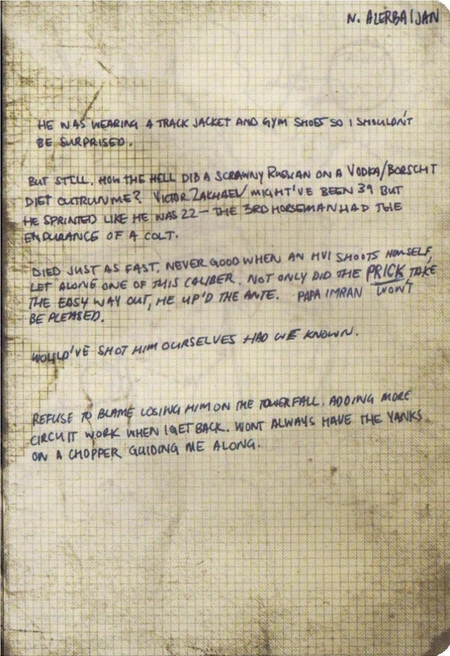 N. AZERBAIJAN
HE WAS WEARING A TRACK JACKET AND GYM SHOES SO I SHOULDN'T
BE SURPRISED.
BUT STILL. HOW THE HELL DID A SCRAWNY RUSSIAN ON A VODKA/BORSCHT
DIET OUTRUN ME? VICTOR ZAKHAEV MIGHT'VE BEEN 39 BUT
HE SPRINTED LIKE HE WAS 22 - THE 3RD HORSEMAN HAD THE
ENDURANCE OF A COLT.
DIED JUST AS FAST. NEVER GOOD WHEN AN HVI SHOOTS HIMSELF,
LET ALONE ONE OF THIS CALIBER. NOT ONLY DID THE PRICK TAKE
THE EASY WAY OUT, HE UP'D THE ANTE. PAPA IMRAN WON'T
BE PLEASED.
WOULD'VE SHOT HIM OURSELVES HAD WE KNOWN.
REFUSE TO BLAME LOSING HIM ON THE TOWER FALL. ADDING MORE
CIRCUIT WORK WHEN I GET BACK. WONT ALWAYS HAVE THE YANKS
ON A CHOPPER GUIDING ME ALONG.